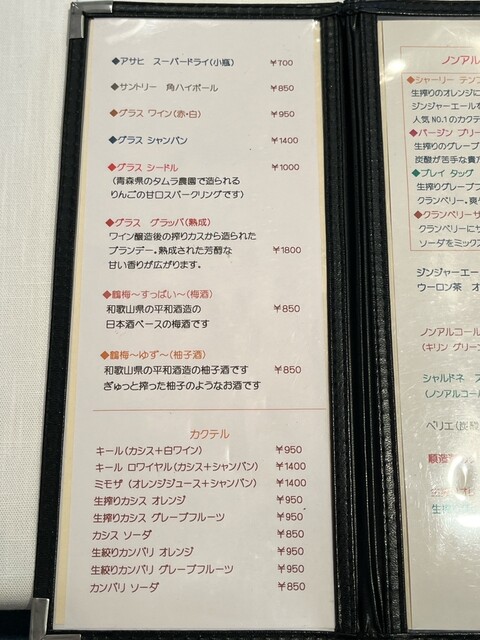 ◆アサヒ スーパードライ(小瓶) ¥700
◆サントリー 角ハイボール ¥850
◆グラス ワイン(赤・白) ¥950
◆グラス シャンパン ¥1400
◆グラス シードル ¥1000
(青森県のタムラ農園で造られる
りんごの甘口スパークリングです)
◆グラス グラッパ(熟成)
ワイン醸造後の搾りカスから造られた
ブランデー。熟成された芳醇な ¥1800
甘い香りが広がります。
◆鶴梅～すっぱい～(梅酒)
和歌山県の平和酒造の ¥850
日本酒ベースの梅酒です
◆鶴梅～ゆず～(柚子酒)
和歌山県の平和酒造の柚子酒です ¥850
ぎゅっと搾った柚子のようなお酒です
カクテル
キール(カシス+白ワイン) ¥950
キール ロワイヤル(カシス+シャンパン) ¥1400
ミモザ (オレンジジュース+シャンパン) ¥1400
生搾りカシス オレンジ ¥950
生搾りカシス グレープフルーツ ¥950
カシス ソーダ ¥850
生絞りカンパリ オレンジ ¥950
生絞りカンパリ グレープフルーツ ¥950
カンパリ ソーダ ¥850
ノンアル
◆シャーリー テンプ
生搾りのオレンジに
ジンジャーエールを
人気 NO.1のカクテ
◆バージン ブリー
生搾りのグレープ
炭酸が苦手な貴方
◆プレイ タッグ
生搾りグレープフ
クランベリー。爽や
◆クランベリーサ
クランベリーにサ
ソーダをミックス
ジンジャーエー
ウーロン茶 オ
ノンアルコール
(キリン グリーン
シャルドネ ス
(ノンアルコール
ペリエ(炭酸